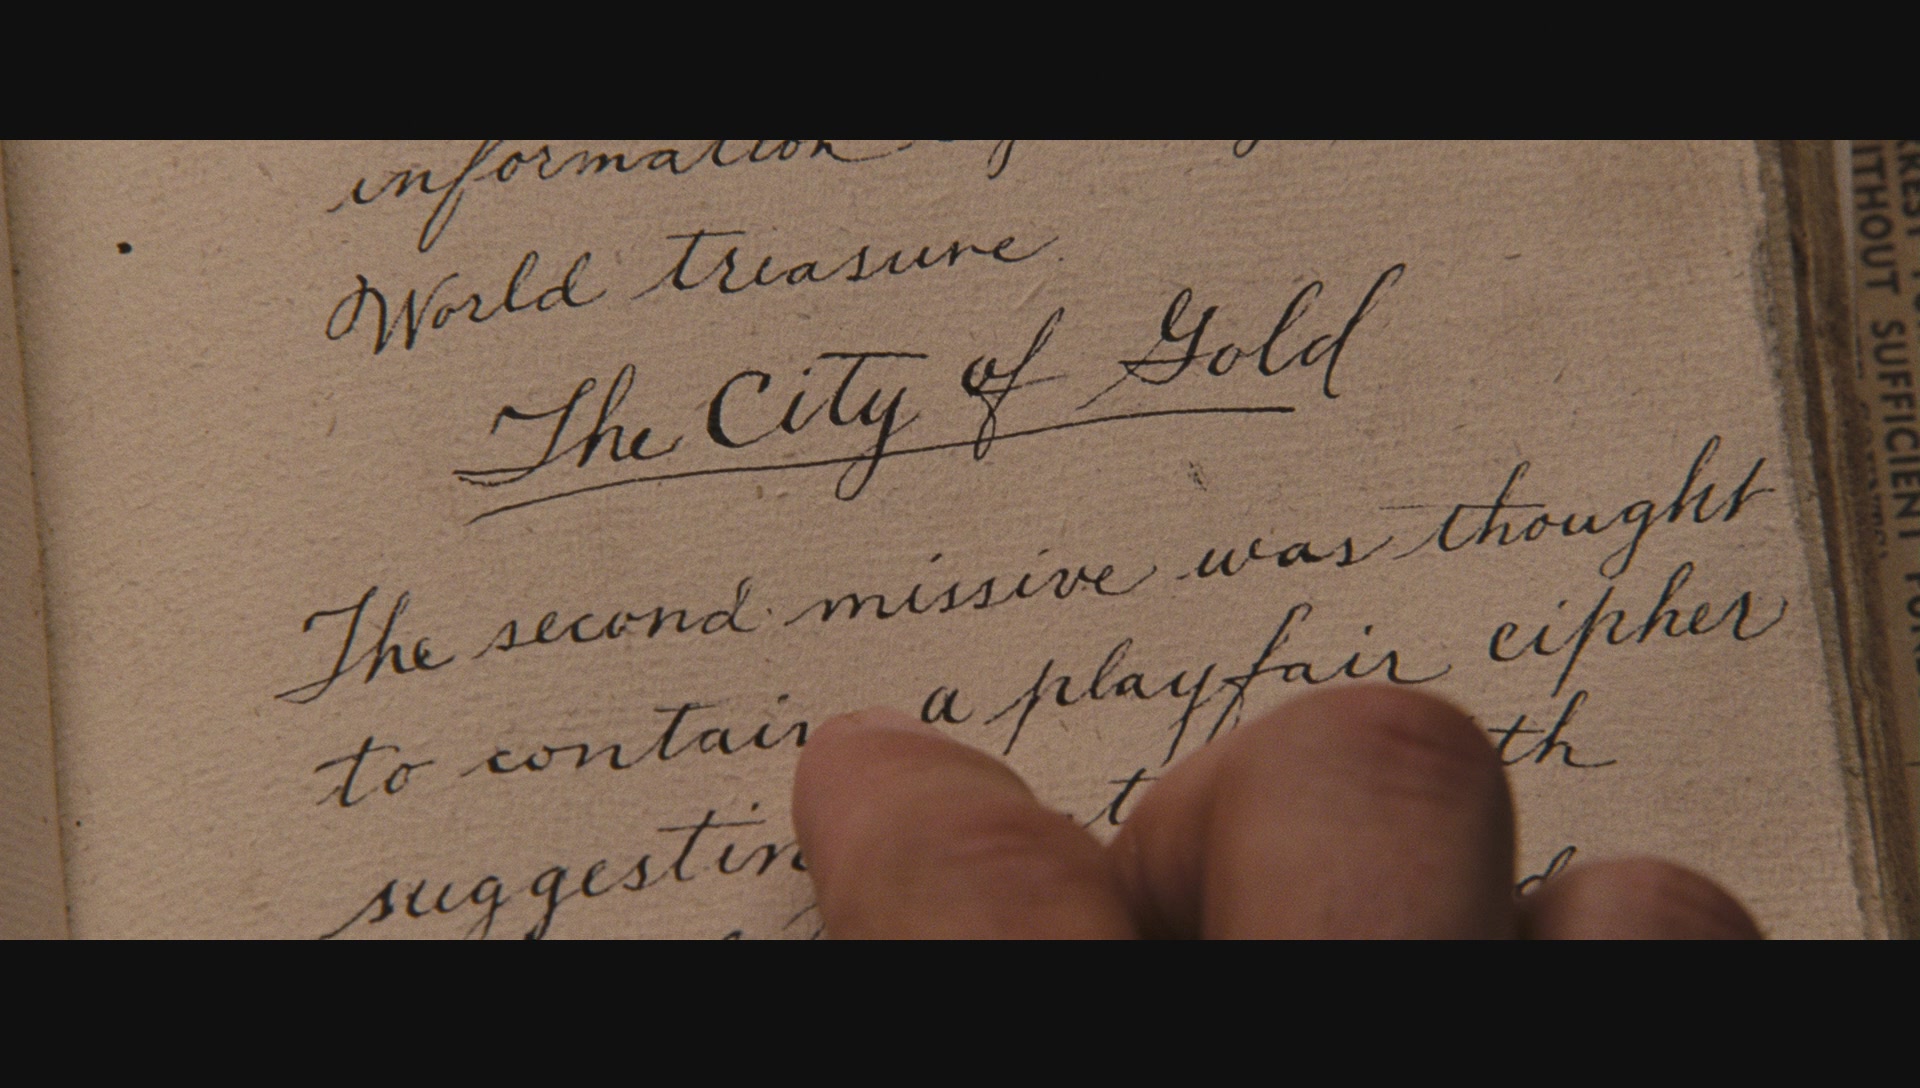 information
World treasure
The City of Gold
The second missive was thought
to contain a playfair cipher
th
WITHOUT SUFFICIENT FUND